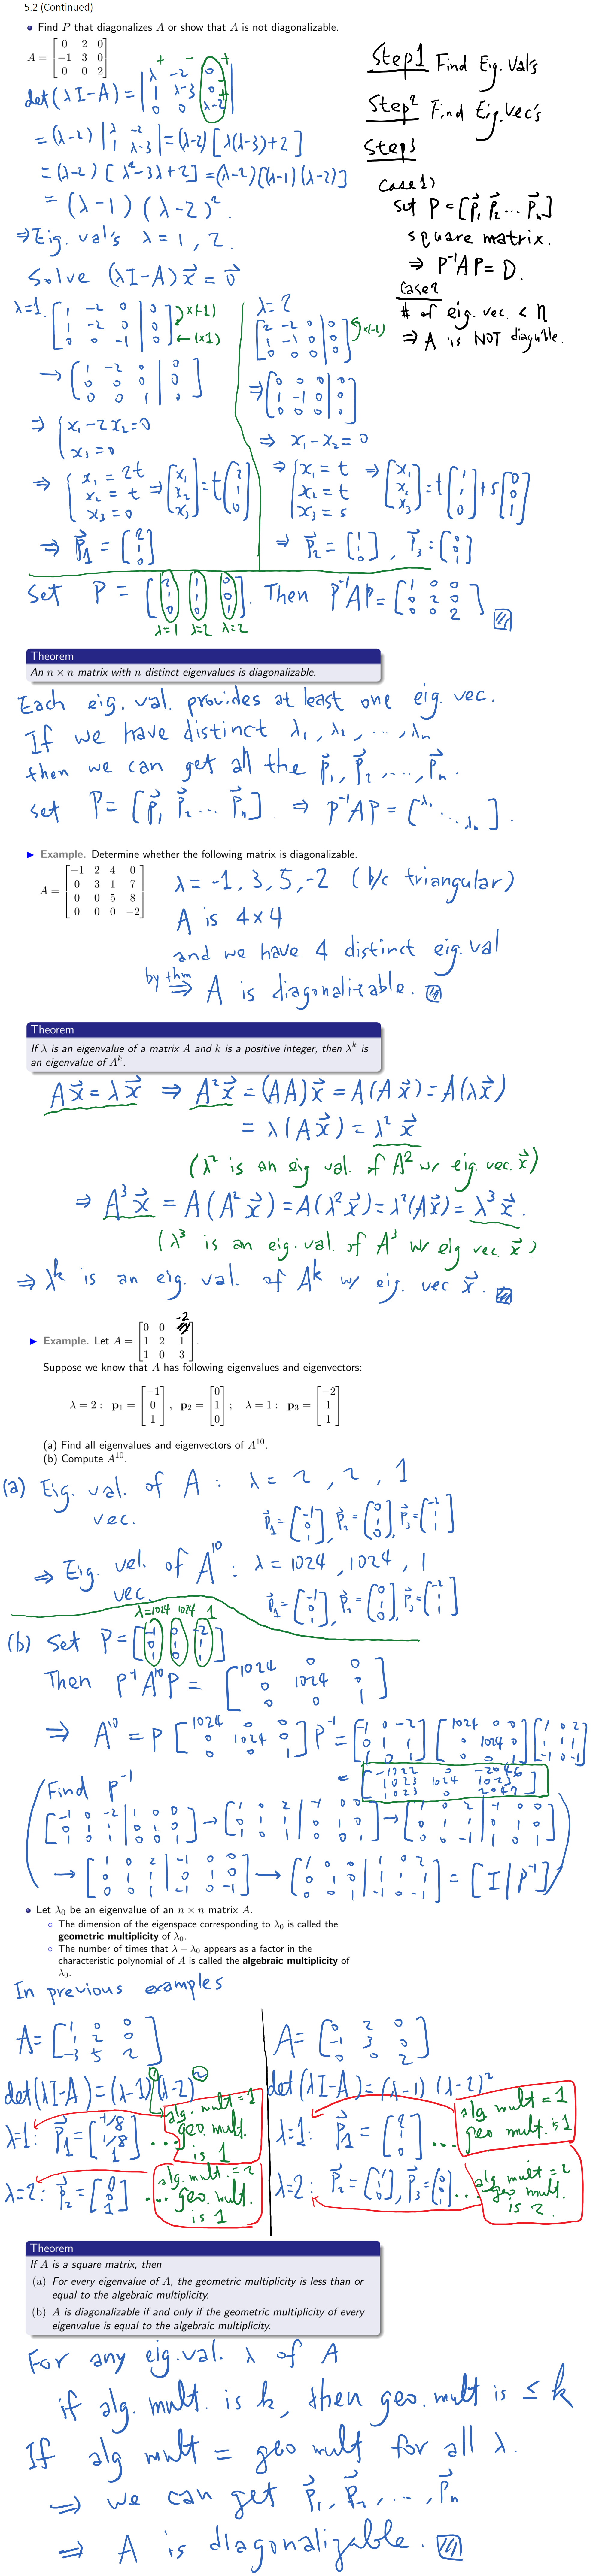 5.2 (Continued)
• Find P that diagonalizes A or show that A is not diagonalizable.
A = [0 2 0; -1 3 0; 0 0 2]
Step1 Find Eig. Val's
Step2 Find Eig. Vec's
Step3
Case1)
Set P = [p⃗₁ p⃗₂ ... p⃗ₙ]
square matrix.
⇒ P⁻¹AP = D.
Case2
# of eig. vec. < n
⇒ A is NOT diag'ble.
det(λI-A) = |λ -2 0; 1 λ-3 0; 0 0 λ-2|
= (λ-2) |λ -2; 1 λ-3| = (λ-2) [λ(λ-3)+2]
= (λ-2) [λ²-3λ+2] = (λ-2)[(λ-1)(λ-2)]
= (λ-1) (λ-2)².
⇒ Eig. val's λ = 1, 2.
Solve (λI-A)x⃗ = 0⃗
λ=1. [1 -2 0 | 0; 1 -2 0 | 0; 0 0 -1 | 0] ×(-1) ←(×1)
→ [1 -2 0 | 0; 0 0 0 | 0; 0 0 1 | 0]
⇒ { x₁-2x₂=0
x₃=0
⇒ { x₁ = 2t x₂ = t x₃ = 0 ⇒ [x₁; x₂; x₃] = t[2; 1; 0]
⇒ p⃗₁ = [2; 1; 0]
λ=2
[2 -2 0 | 0; 1 -1 0 | 0; 0 0 0 | 0] ×(-2)
⇒ [0 0 0 | 0; 1 -1 0 | 0; 0 0 0 | 0]
⇒ x₁-x₂ = 0
⇒ { x₁ = t x₂ = t x₃ = s ⇒ [x₁; x₂; x₃] = t[1; 1; 0] + s[0; 0; 1]
⇒ p⃗₂ = [1; 1; 0], p⃗₃ = [0; 0; 1]
Set P = [2 1 0; 1 1 0; 0 0 1]. Then P⁻¹AP = [1 0 0; 0 2 0; 0 0 2]
λ=1 λ=2 λ=2
Theorem
An n × n matrix with n distinct eigenvalues is diagonalizable.
Each eig. val. provides at least one eig. vec.
If we have distinct λ₁, λ₂, ..., λₙ
then we can get all the p⃗₁, p⃗₂, ..., p⃗ₙ.
Set P = [p⃗₁ p⃗₂ ... p⃗ₙ] ⇒ P⁻¹AP = [λ₁ ... λₙ].
▶ Example. Determine whether the following matrix is diagonalizable.
A = [-1 2 4 0; 0 3 1 7; 0 0 5 8; 0 0 0 -2]
λ = -1, 3, 5, -2 (b/c triangular)
A is 4×4
and we have 4 distinct eig. val
by thm ⇒ A is diagonalizable.
Theorem
If λ is an eigenvalue of a matrix A and k is a positive integer, then λᵏ is
an eigenvalue of Aᵏ.
Ax⃗ = λx⃗ ⇒ A²x⃗ = (AA)x⃗ = A(Ax⃗) = A(λx⃗)
= λ(Ax⃗) = λ²x⃗
(λ² is an eig val. of A² w/ eig. vec. x⃗)
⇒ A³x⃗ = A(A²x⃗) = A(λ²x⃗) = λ²(Ax⃗) = λ³x⃗.
(λ³ is an eig. val. of A³ w/ eig vec. x⃗)
⇒ λᵏ is an eig. val. of Aᵏ w/ eig. vec x⃗.
▶ Example. Let A = [0 0 -2; 1 2 1; 1 0 3].
Suppose we know that A has following eigenvalues and eigenvectors:
λ = 2 : p₁ = [-1; 0; 1], p₂ = [0; 1; 0]; λ = 1 : p₃ = [-2; 1; 1]
(a) Find all eigenvalues and eigenvectors of A¹⁰.
(b) Compute A¹⁰.
(a) Eig. val. of A : λ = 2, 2, 1
vec. p⃗₁=[-1; 0; 1], p⃗₂=[0; 1; 0], p⃗₃=[-2; 1; 1]
⇒ Eig. vel. of A¹⁰ : λ = 1024, 1024, 1
vec. p⃗₁=[-1; 0; 1], p⃗₂=[0; 1; 0], p⃗₃=[-2; 1; 1]
λ=1024 1024 1
(b) Set P = [-1 0 -2; 0 1 1; 1 0 1]
Then P⁻¹A¹⁰P = [1024 0 0; 0 1024 0; 0 0 1]
⇒ A¹⁰ = P [1024 0 0; 0 1024 0; 0 0 1] P⁻¹ = [-1 0 -2; 0 1 1; 1 0 1] [1024 0 0; 0 1024 0; 0 0 1] [1 0 2; 1 1 1; -1 0 -1]
= [-1022 0 -2046; 1023 1024 1023; 1023 0 2047]
Find P⁻¹
[-1 0 -2 | 1 0 0; 0 1 1 | 0 1 0; 1 0 1 | 0 0 1] → [1 0 2 | -1 0 0; 0 1 1 | 0 1 0; 1 0 1 | 0 0 1] → [1 0 2 | -1 0 0; 0 1 1 | 0 1 0; 0 0 -1 | 1 0 1]
→ [1 0 2 | -1 0 0; 0 1 1 | 0 1 0; 0 0 1 | -1 0 -1] → [1 0 0 | 1 0 2; 0 1 0 | 1 1 1; 0 0 1 | -1 0 -1] = [I | P⁻¹]
• Let λ₀ be an eigenvalue of an n × n matrix A.
◦ The dimension of the eigenspace corresponding to λ₀ is called the
geometric multiplicity of λ₀.
◦ The number of times that λ − λ₀ appears as a factor in the
characteristic polynomial of A is called the algebraic multiplicity of
λ₀.
In previous examples
A = [1 0 0; 1 2 0; -3 5 2]
det(λI-A) = (λ-1)¹(λ-2)²
λ=1: p⃗₁ = [-1/8; 1/8; 1] ... alg. mult = 1 geo mult. is 1
λ=2: p⃗₂ = [0; 0; 1] ... alg. mult. = 2 geo mult. is 1
A = [0 2 0; -1 3 0; 0 0 2]
det(λI-A) = (λ-1) (λ-2)²
λ=1: p⃗₁ = [2; 1; 0] ... alg mult = 1 geo mult. is 1
λ=2: p⃗₂ = [1; 1; 0], p⃗₃ = [0; 0; 1] ... alg mult = 2 geo mult. is 2.
Theorem
If A is a square matrix, then
(a) For every eigenvalue of A, the geometric multiplicity is less than or
equal to the algebraic multiplicity.
(b) A is diagonalizable if and only if the geometric multiplicity of every
eigenvalue is equal to the algebraic multiplicity.
For any eig. val. λ of A
if alg. mult. is k, then geo. mult is ≤ k
If alg mult = geo mult for all λ.
⇒ we can get p⃗₁, p⃗₂, ..., p⃗ₙ
⇒ A is diagonalizable.